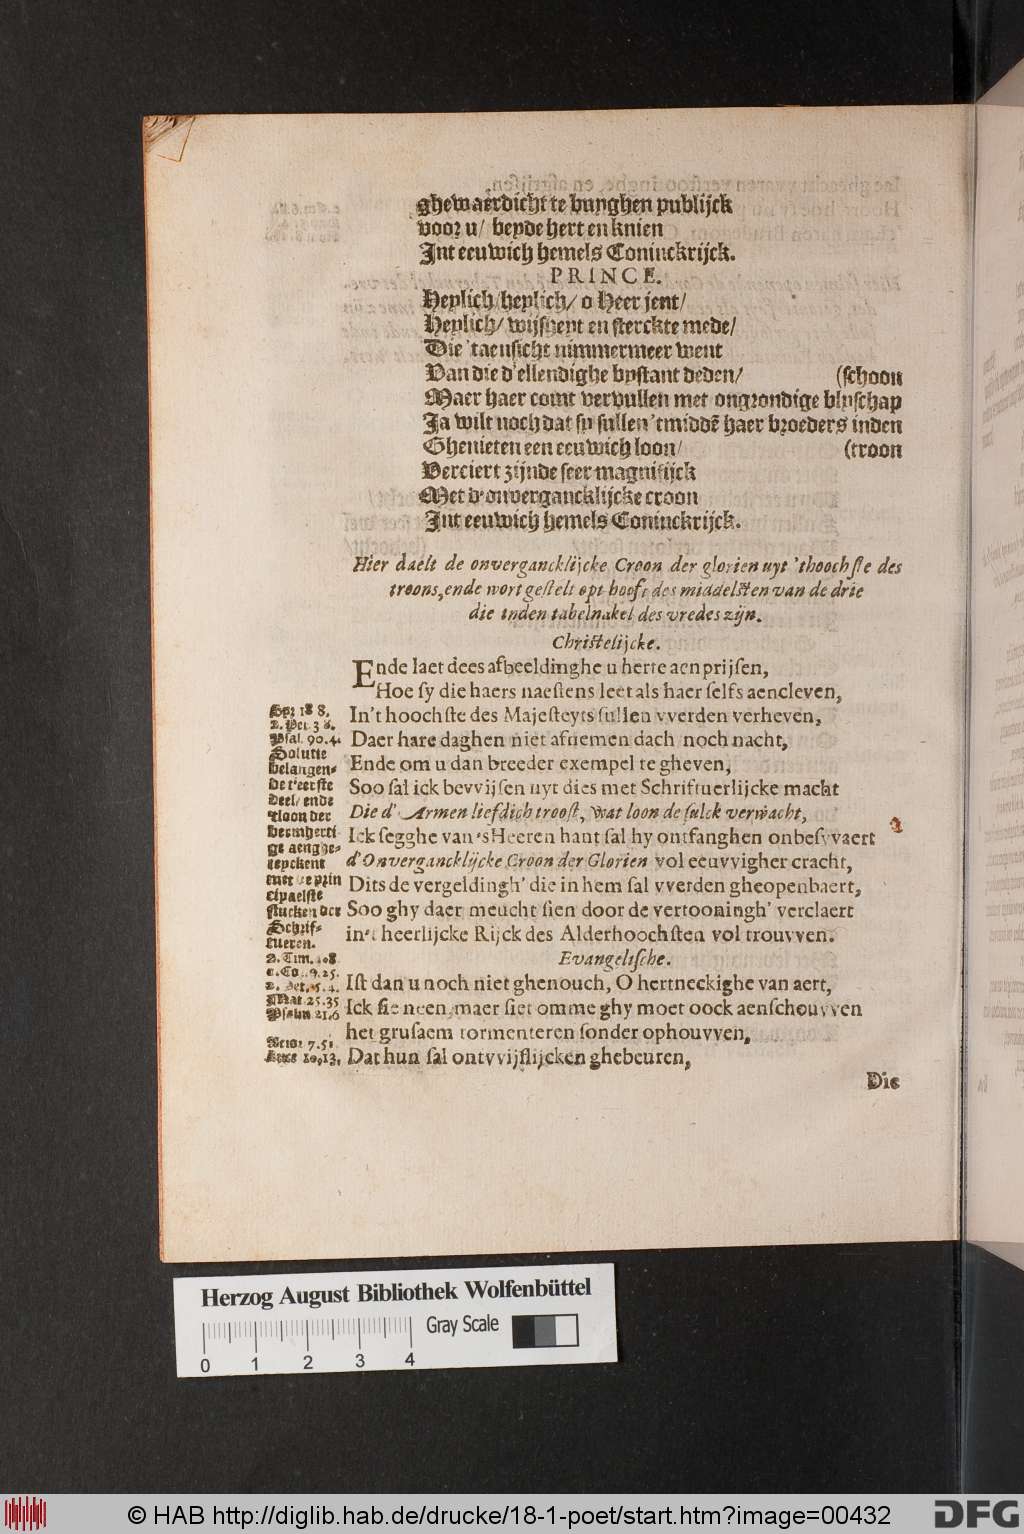 ghewaerdicht te buyghen publijck
voor u/ beyde hert en knien
Int eeuwich hemels Coninckrijck.
PRINCE.
Heylich/heylich/ o Heer jent/
Heylich/ wijsheyt en sterckte mede/
Die 'taensicht nimmermeer went
Van die d'ellendighe bystant deden/ (schoon
Maer haer comt vervullen met ongrondige blyschap
Ja wilt noch dat sy sullen 'tmiddē haer broeders inden
Ghenieten een eeuwich loon/ (troon
Verciert zijnde seer magnifijck
Met d'onvergancklijcke croon
Int eeuwich hemels Coninckrijck.
Hier daelt de onvergancklijcke Croon der glorien uyt 'thoochste des
troons, ende wort gestelt opt hooft des middelsten van de drie
die inden tabelnakel des vredes zijn.
Christelijcke.
Ende laet dees afbeeldinghe u herte aenprijsen,
Hoe sy die haers naestens leet als haer selfs aencleven,
In't hoochste des Majesteyts sullen vverden verheven,
Daer hare daghen niet afnemen dach noch nacht,
Ende om u dan breeder exempel te gheven,
Soo sal ick bevvijsen uyt dies met Schriftuerlijcke macht
Die d'Armen liefdich troost, wat loon de sulck verwacht,
Ick segghe van 'sHeeren hant sal hy ontfanghen onbesvvaert
d'Onvergancklijcke Croon der Glorien vol eeuvvigher cracht,
Dits de vergeldingh' die in hem sal vverden gheopenbaert,
Soo ghy daer meucht sien door de vertooningh' verclaert
in't heerlijcke Rijck des Alderhoochsten vol trouvven.
Evangelische.
Ist dan u noch niet ghenouch, O hertneckighe van aert,
Ick sie neen, maer siet omme ghy moet oock aenschouvven
het grusaem tormenteren sonder ophouvven,
Dat hun sal ontvvijflijcken ghebeuren,
Die
2. Pet. 3 8.
Psal. 90.4.
Solutie
belangen-
de t'eerste
deel/ ende
'tloon der
bermherti
ge aenghe-
teyckent
met de prin
cipaelste
stucken der
Schrif-
tueren.
2. Tim. 4 8
1. Co. 9.25.
2. Pet. 5.4.
Mat 25.35
Psalm 21.6
Actor 7.51
Herzog August Bibliothek Wolfenbüttel
Gray Scale
0 1 2 3 4
© HAB http://diglib.hab.de/drucke/18-1-poet/start.htm?image=00432
DFG